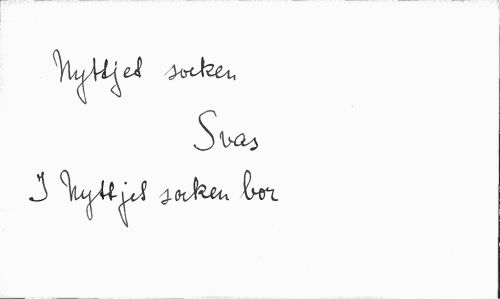 Nyttjet socken
Svas
I Nyttjet socken bor